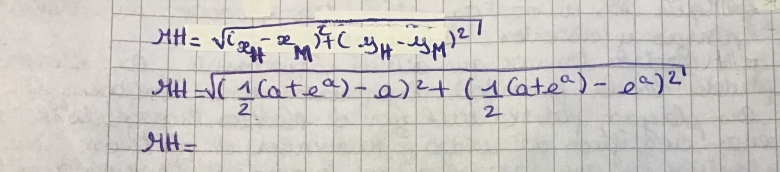 MH = √(x_H - x_M)² + (y_H - y_M)²
MH = √(1/2 (a + e^a) - a)² + (1/2 (a + e^a) - e^a)²
MH =